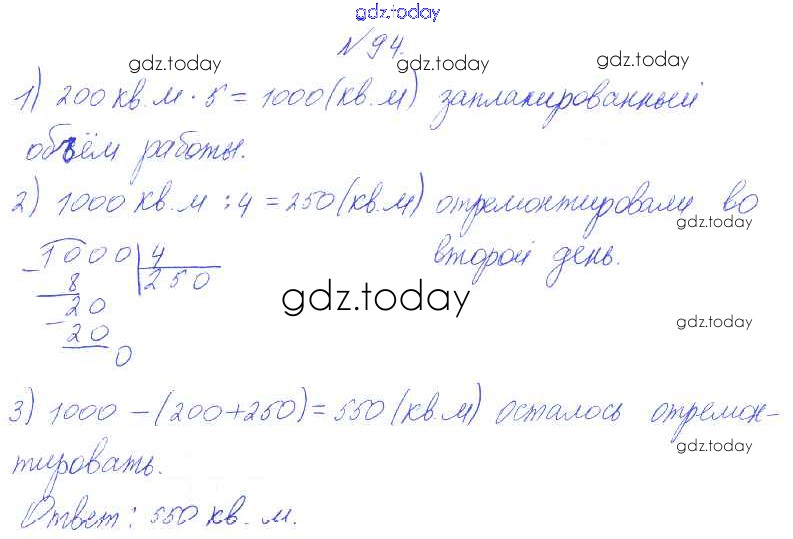 gdz.today
№94.
gdz.today gdz.today
1) 200 кв. м · 5 = 1000 (кв. м) запланированный
объём работы.
2) 1000 кв. м : 4 = 250 (кв. м) отремонтировали во
gdz.today
второй день.
1000 4
8 250
20
20
0
gdz.today
gdz.today
3) 1000 - (200+250) = 550 (кв. м) осталось отремон-
gdz.today
тировать.
Ответ: 550 кв. м.